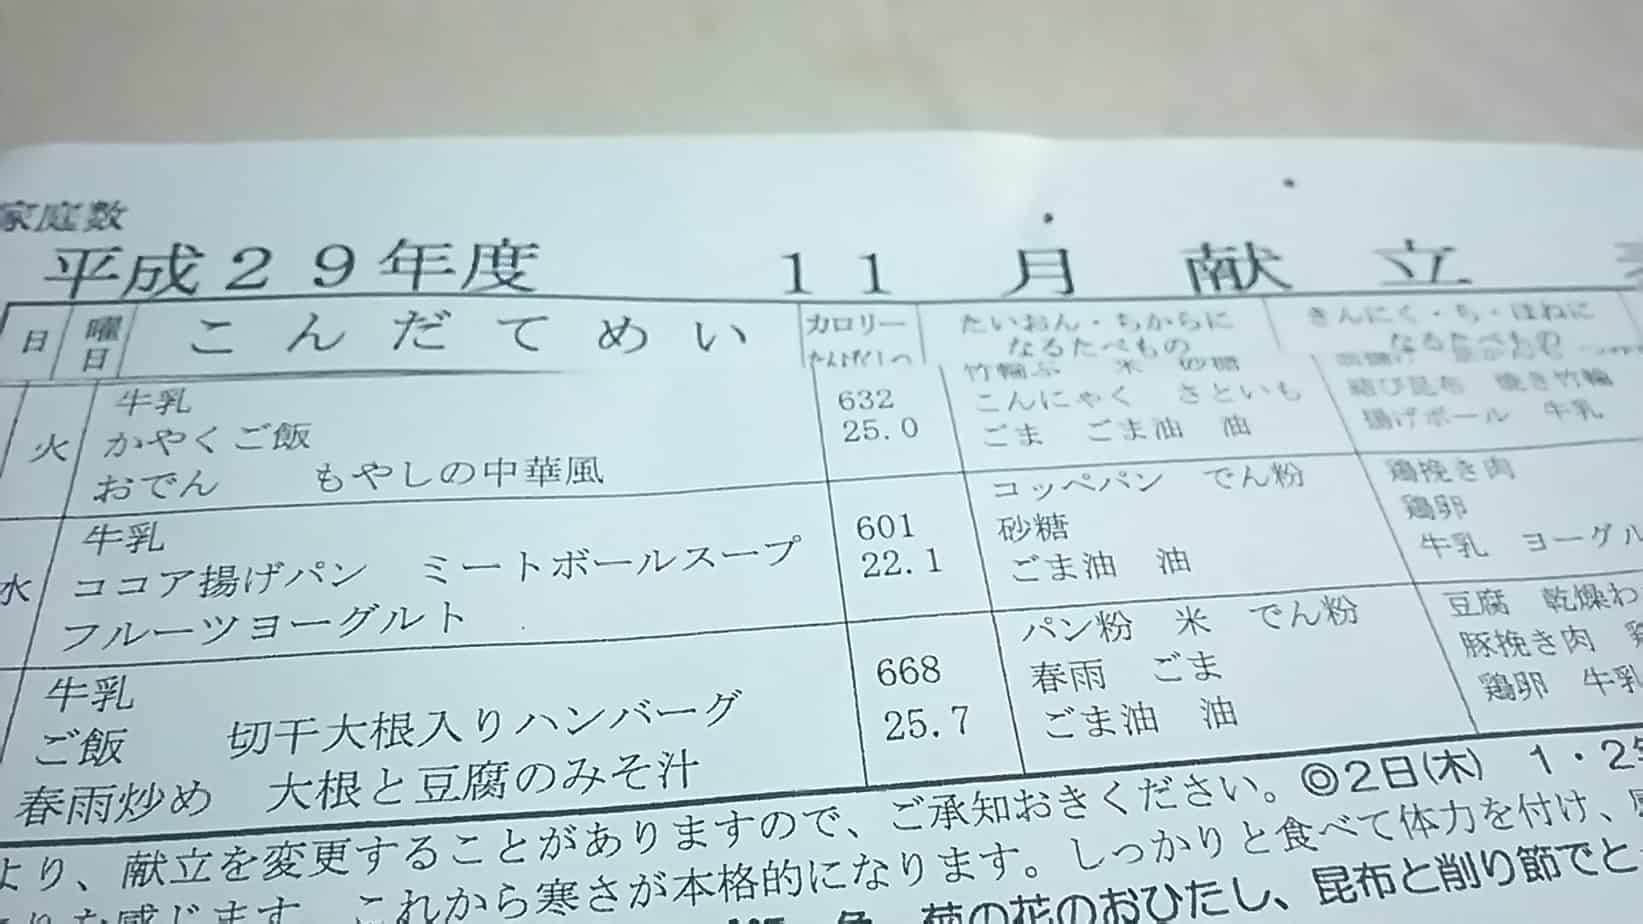 家庭数
平成29年度 11月献立
日 曜日 こんだてめい カロリー たいおん・ちからに きんにく・ち・ほねに
なるたべもの なるたべもの
竹輪ぶ 米 砂糖
牛乳 632 こんにゃく さといも 結び昆布 焼き竹輪
火 かやくご飯 25.0 ごま ごま油 油 揚げボール 牛乳
おでん もやしの中華風
牛乳 601 コッペパン でん粉 鶏挽き肉
水 ココア揚げパン ミートボールスープ 22.1 砂糖 鶏卵
フルーツヨーグルト ごま油 油 牛乳 ヨーグル
牛乳 668 パン粉 米 でん粉 豆腐 乾燥わ
ご飯 切干大根入りハンバーグ 25.7 春雨 ごま 豚挽き肉
春雨炒め 大根と豆腐のみそ汁 ごま油 油 鶏卵 牛乳
より、献立を変更することがありますので、ご承知おきください。◎2日(木) 1・2年
感じます。これから寒さが本格的になります。しっかりと食べて体力を付け、
菊の花のおひたし、昆布と削り節でと